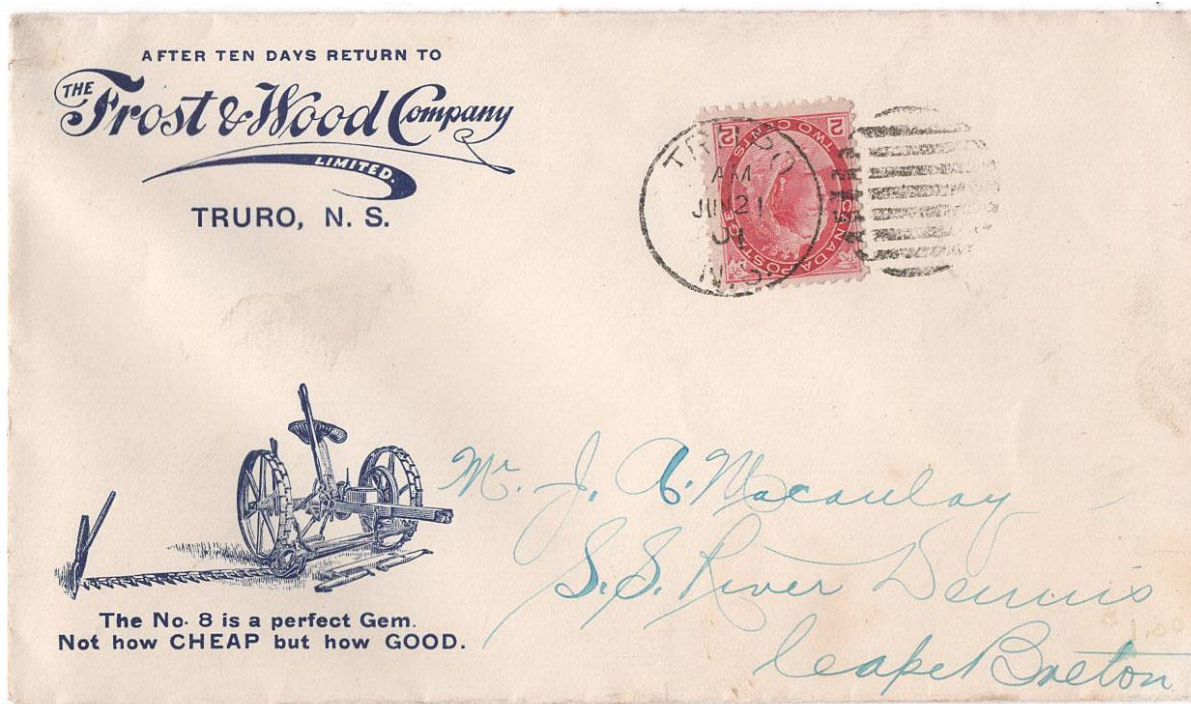 AFTER TEN DAYS RETURN TO
THE Frost & Wood Company
LIMITED.
TRURO, N. S.
2 TWO CENTS 2
CANADA POSTAGE
TRURO
AM
JUN 21
N.S.
The No. 8 is a perfect Gem.
Not how CHEAP but how GOOD.
Mr. J. A. Macaulay
S. S. River Dennis
Cape Breton